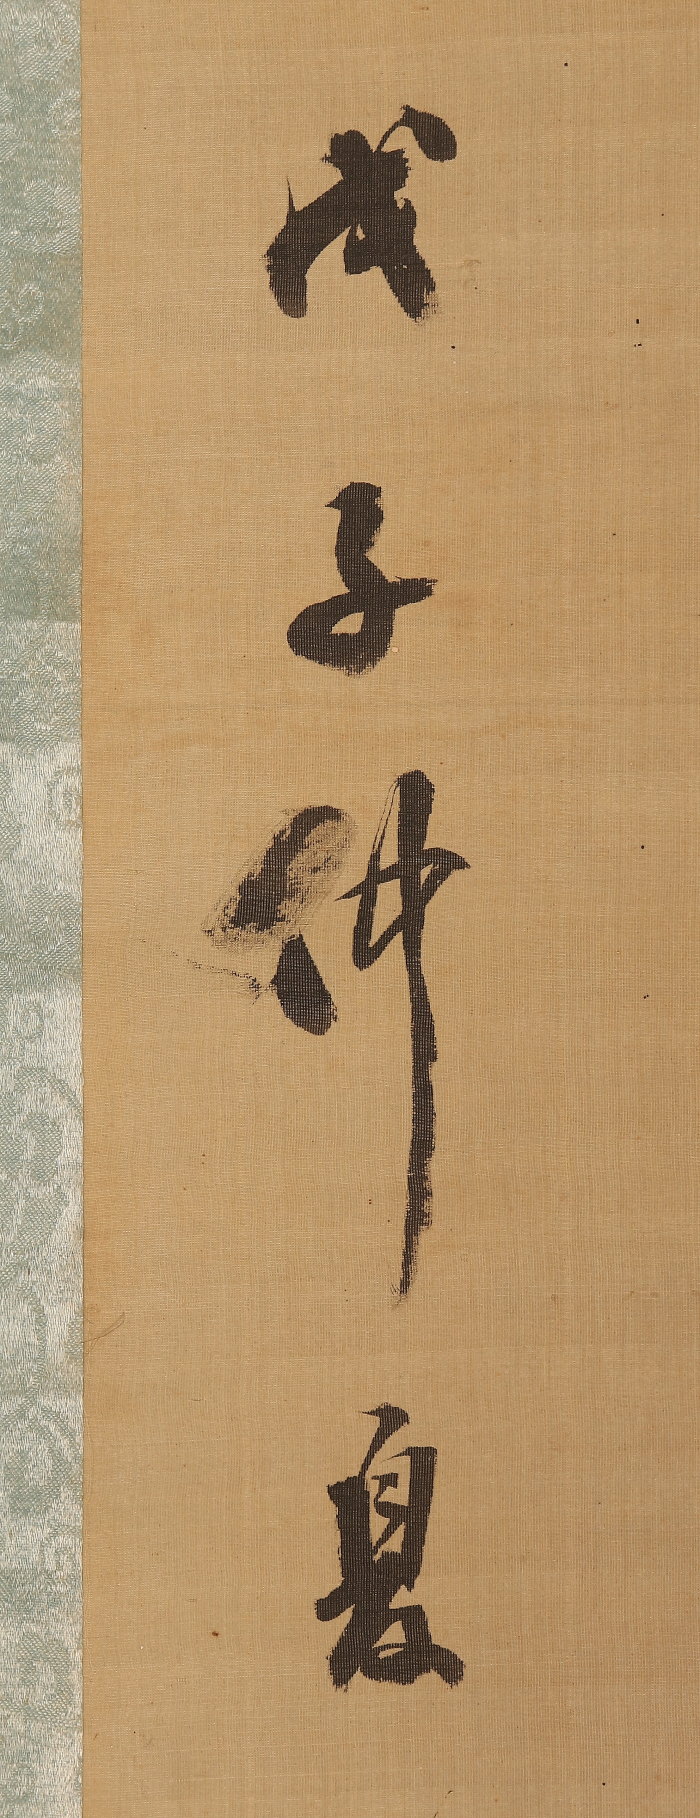 戊子仲夏